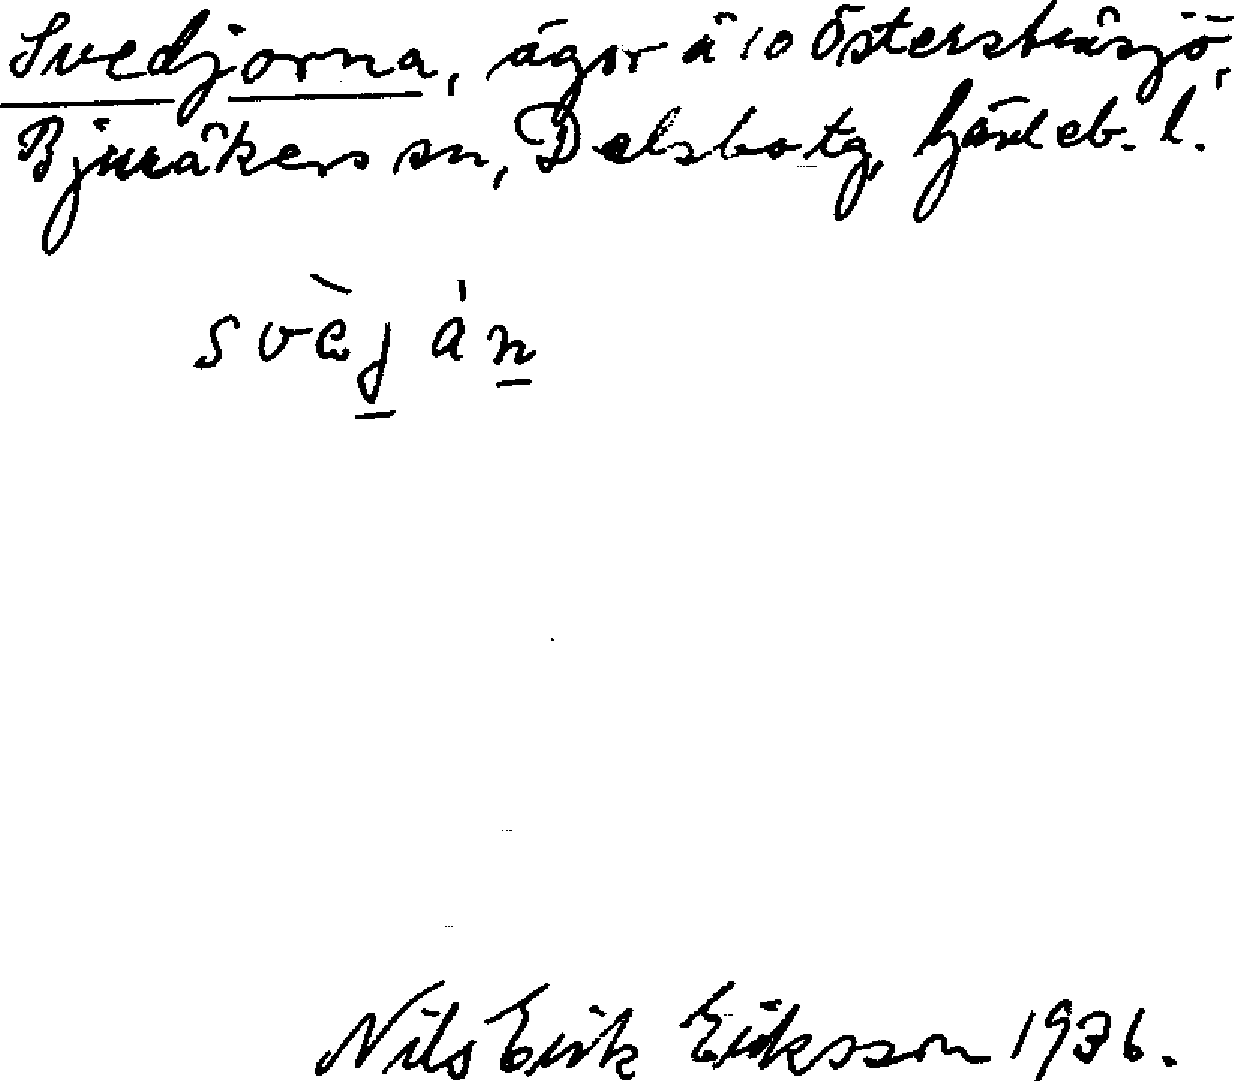 Svedjorna, ägor å 10 Österstråsjö,
Bjuråkers sn, Delsbo tg, Gävleb. l.
svè̀ján
Nils Erik Eriksson 1936.